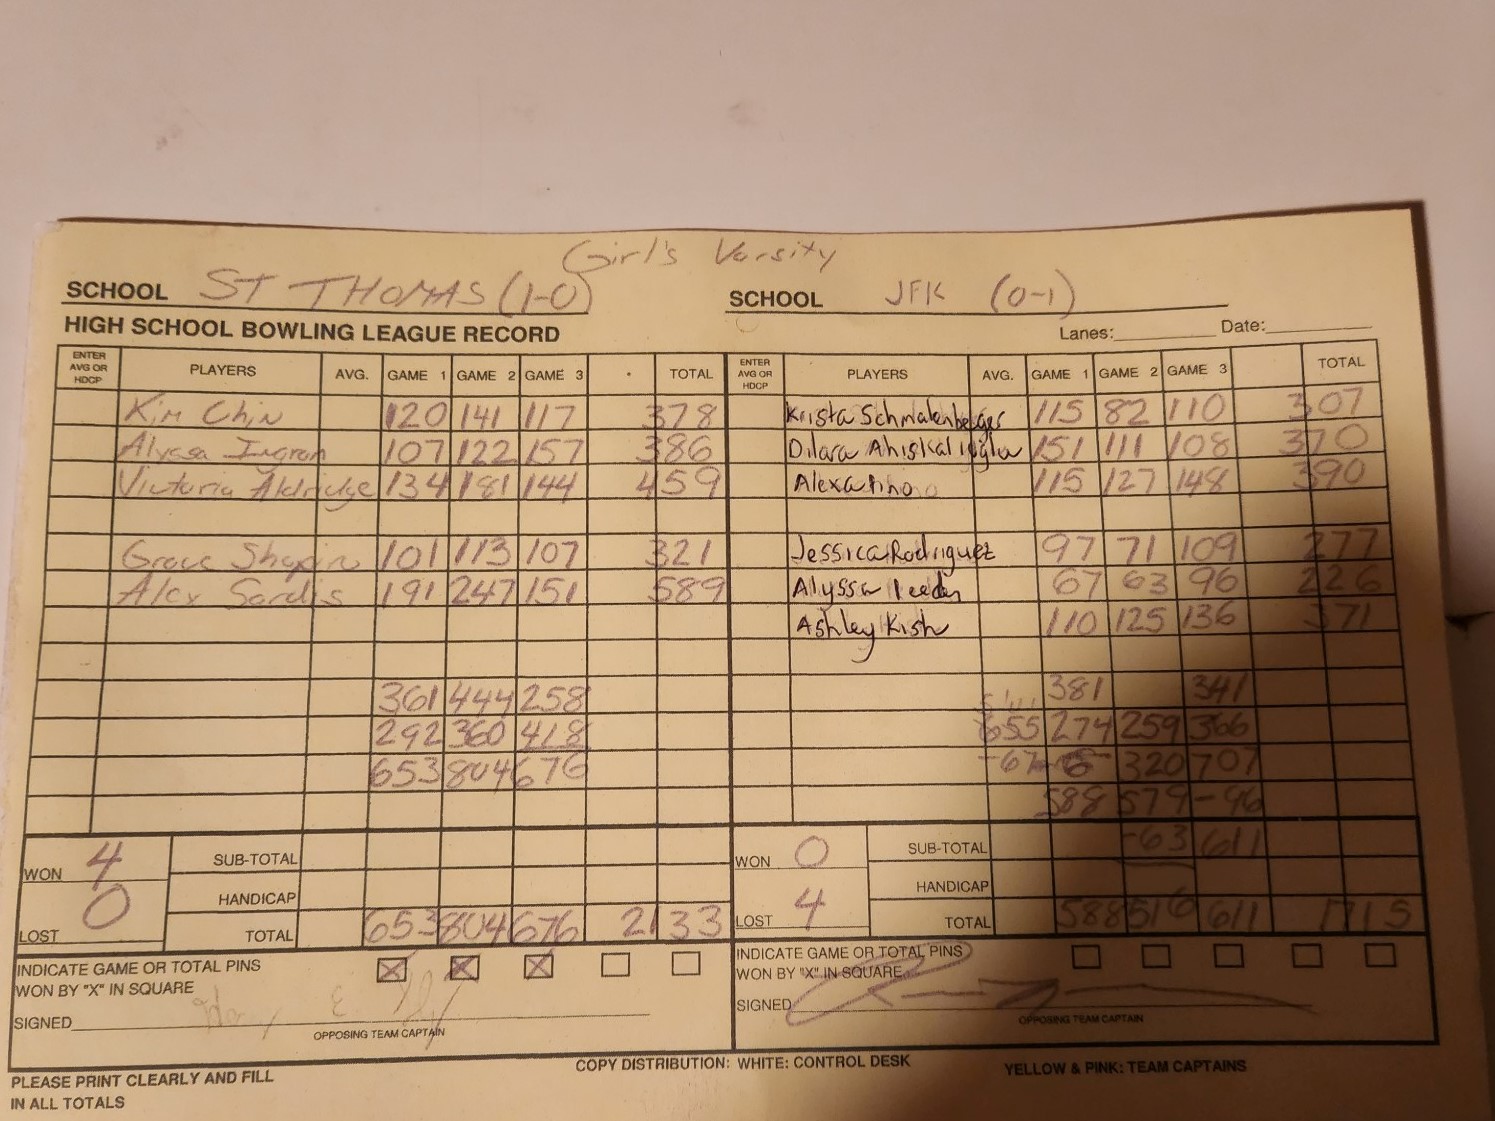 Girl's Varsity
SCHOOL ST THOMAS (1-0) SCHOOL JFK (0-1)
HIGH SCHOOL BOWLING LEAGUE RECORD Lanes: Date:
ENTER AVG OR HDCP PLAYERS AVG. GAME 1 GAME 2 GAME 3 TOTAL ENTER AVG OR HDCP PLAYERS AVG. GAME 1 GAME 2 GAME 3 TOTAL
Kim Chin 120 141 117 378 Krista Schmalenberger 115 82 110 307
Alyssa Ingram 107 122 157 386 Dilara 151 111 108 370
Victoria Aldridge 134 181 144 459 Alexa Pino 115 127 148 390
Grace Shapiro 101 113 107 321 Jessica Rodriguez 97 71 109 277
Alex Sardis 191 247 151 589 Alyssa 67 63 96 226
Ashley Kish 110 125 136 371
361 444 258 381 341
292 360 418 655 274 259 366
653 804 676 -67 320 707
588 579 -96
WON 4 SUB-TOTAL WON 0 SUB-TOTAL -63 611
HANDICAP HANDICAP
LOST 0 TOTAL 653 804 676 2133 LOST 4 TOTAL 588 516 611 1715
INDICATE GAME OR TOTAL PINS INDICATE GAME OR TOTAL PINS
WON BY "X" IN SQUARE WON BY "X" IN SQUARE
SIGNED SIGNED
OPPOSING TEAM CAPTAIN OPPOSING TEAM CAPTAIN
COPY DISTRIBUTION: WHITE: CONTROL DESK YELLOW & PINK: TEAM CAPTAINS
PLEASE PRINT CLEARLY AND FILL
IN ALL TOTALS